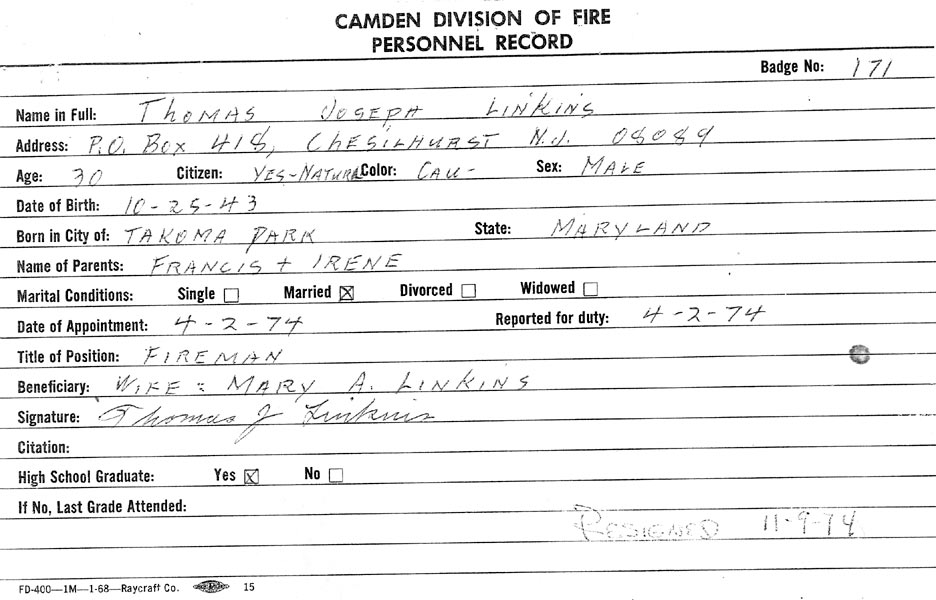 CAMDEN DIVISION OF FIRE
PERSONNEL RECORD
Badge No: 171
Name in Full: THOMAS JOSEPH LINKINS
Address: P.O. BOX 418, CHESILHURST N.J. 08089
Age: 30 Citizen: YES-NATURAL Color: CAU- Sex: MALE
Date of Birth: 10-25-43
Born in City of: TAKOMA PARK State: MARYLAND
Name of Parents: FRANCIS + IRENE
Marital Conditions: Single ☐ Married ☒ Divorced ☐ Widowed ☐
Date of Appointment: 4-2-74 Reported for duty: 4-2-74
Title of Position: FIREMAN
Beneficiary: WIFE: MARY A. LINKINS
Signature: Thomas J Linkins
Citation:
High School Graduate: Yes ☒ No ☐
If No, Last Grade Attended:
RESIGNED 11-9-74
FD-400—1M—1-68—Raycraft Co. 15